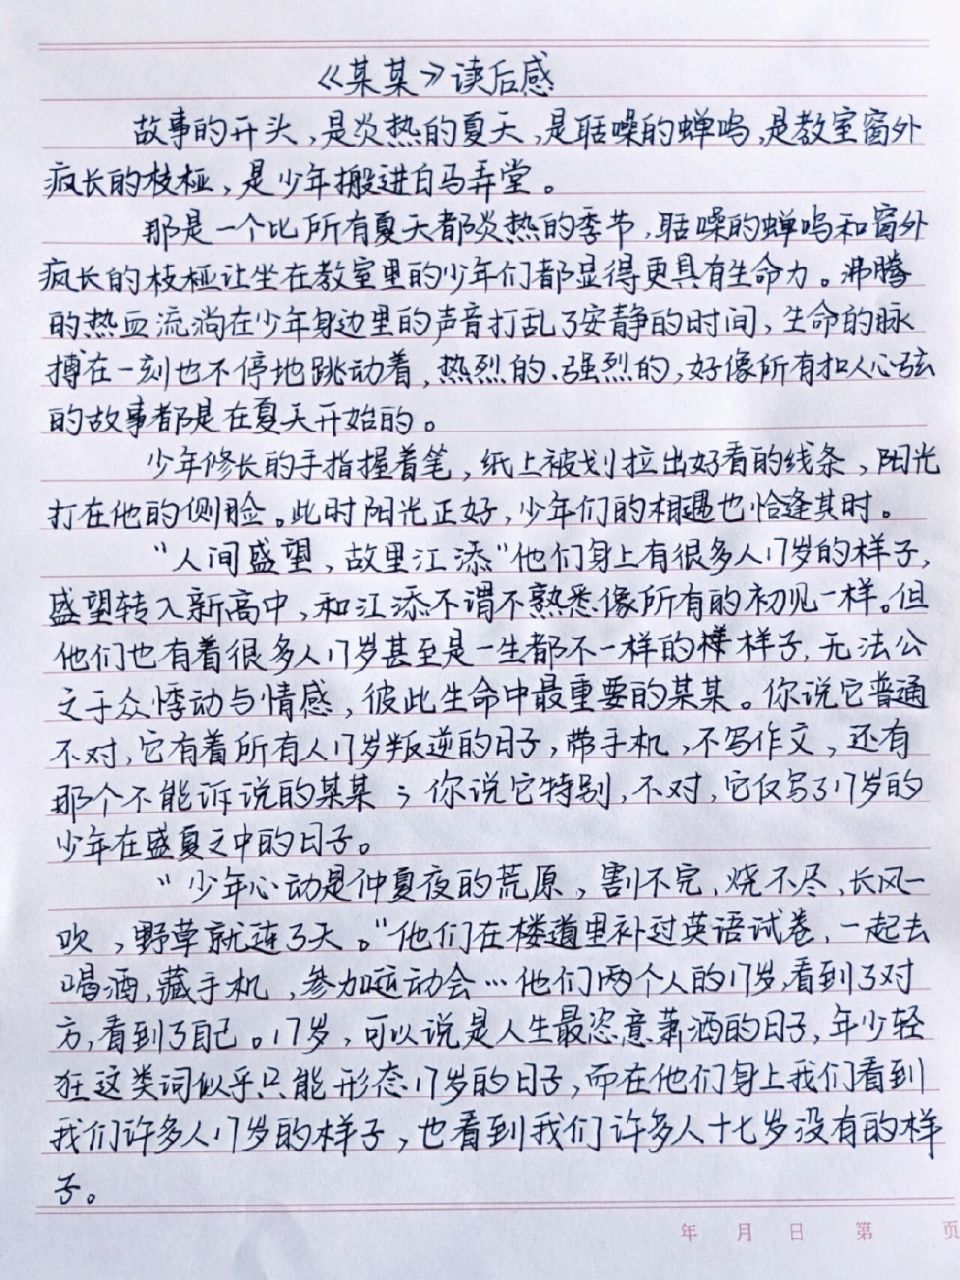 《某某》读后感
故事的开头,是炎热的夏天,是聒噪的蝉鸣,是教室窗外
疯长的枝桠,是少年搬进白马弄堂。
那是一个比所有夏天都炎热的季节,聒噪的蝉鸣和窗外
疯长的枝桠让坐在教室里的少年们都显得更具有生命力。沸腾
的热血流淌在少年身边里的声音打乱了安静的时间,生命的脉
搏在一刻也不停地跳动着,热烈的、强烈的,好像所有扣人心弦
的故事都是在夏天开始的。
少年修长的手指握着笔,纸上被划拉出好看的线条,阳光
打在他的侧脸。此时阳光正好,少年们的相遇也恰逢其时。
"人间盛望,故里江添"他们身上有很多人17岁的样子,
盛望转入新高中,和江添不谓不熟悉像所有的初见一样。但
他们也有着很多人17岁甚至是一生都不一样的样样子,无法公
之于众悸动与情感,彼此生命中最重要的某某。你说它普通
不对,它有着所有人17岁叛逆的日子,带手机,不写作文,还有
那个不能诉说的某某;你说它特别,不对,它仅写了17岁的
少年在盛夏之中的日子。
"少年心动是仲夏夜的荒原,割不完,烧不尽,长风一
吹,野草就连了天。"他们在楼道里补过英语试卷,一起去
喝酒,藏手机,参加运动会…他们两个人的17岁,看到了对
方,看到了自己。17岁,可以说是人生最恣意萧洒的日子,年少轻
狂这类词似乎只能形态17岁的日子,而在他们身上我们看到
我们许多人17岁的样子,也看到我们许多人十七岁没有的样
子。
年 月 日 第 页